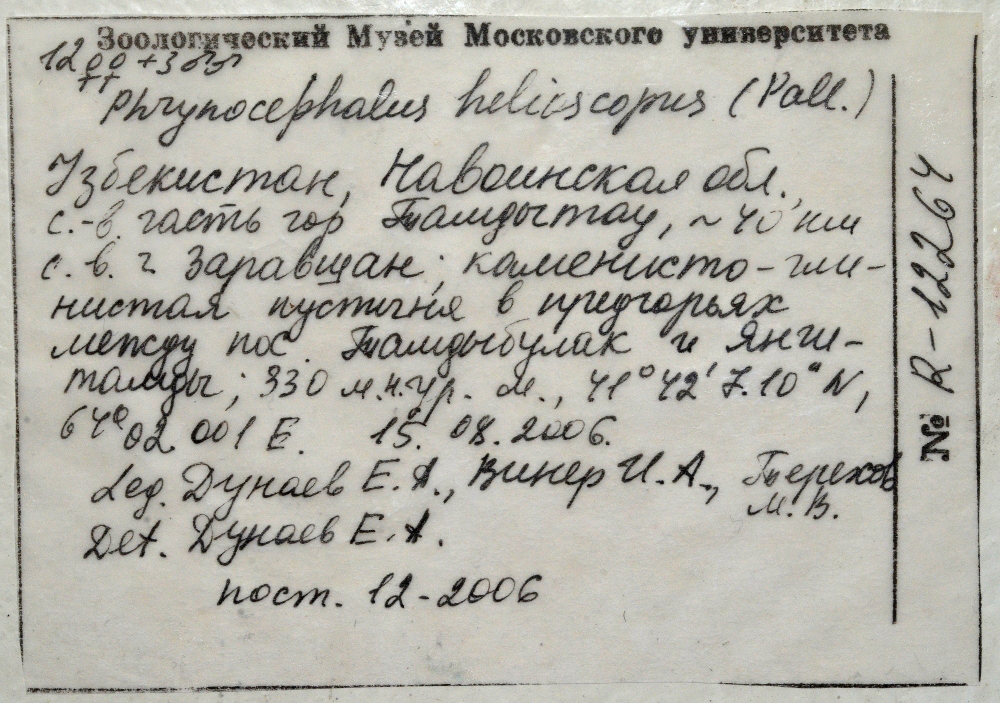 Зоологический Музей Московского университета
12♀♀+3♂♂
Phrynocephalus helioscopus (Pall.)
Узбекистан, Навоинская обл.,
с.-в. часть гор Тамдытау, ~ 40 км
с.-в. г. Заравшан; каменисто-гли-
нистая пустыня в предгорьях
между пос. Тамдыбулак и Янги-
тамды; 330 м.н.ур. м., 41° 42' 7.10" N,
64° 02. 001 E. 15. 08. 2006.
Leg. Дунаев Е.А., Винер И.А., Терехов
М.В.
Det. Дунаев Е.А.
пост. 12-2006
№ R-12264